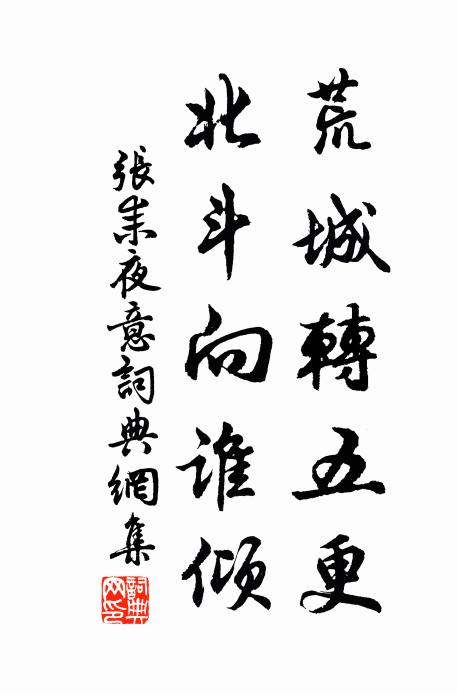 荒城轉五更
北斗向誰傾
張耒夜意詞典網集
詞典網印